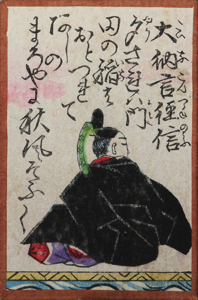 大納言經信
夕されハ門
田の稲は
おとつれて
あしの
まろやに秋風そふく